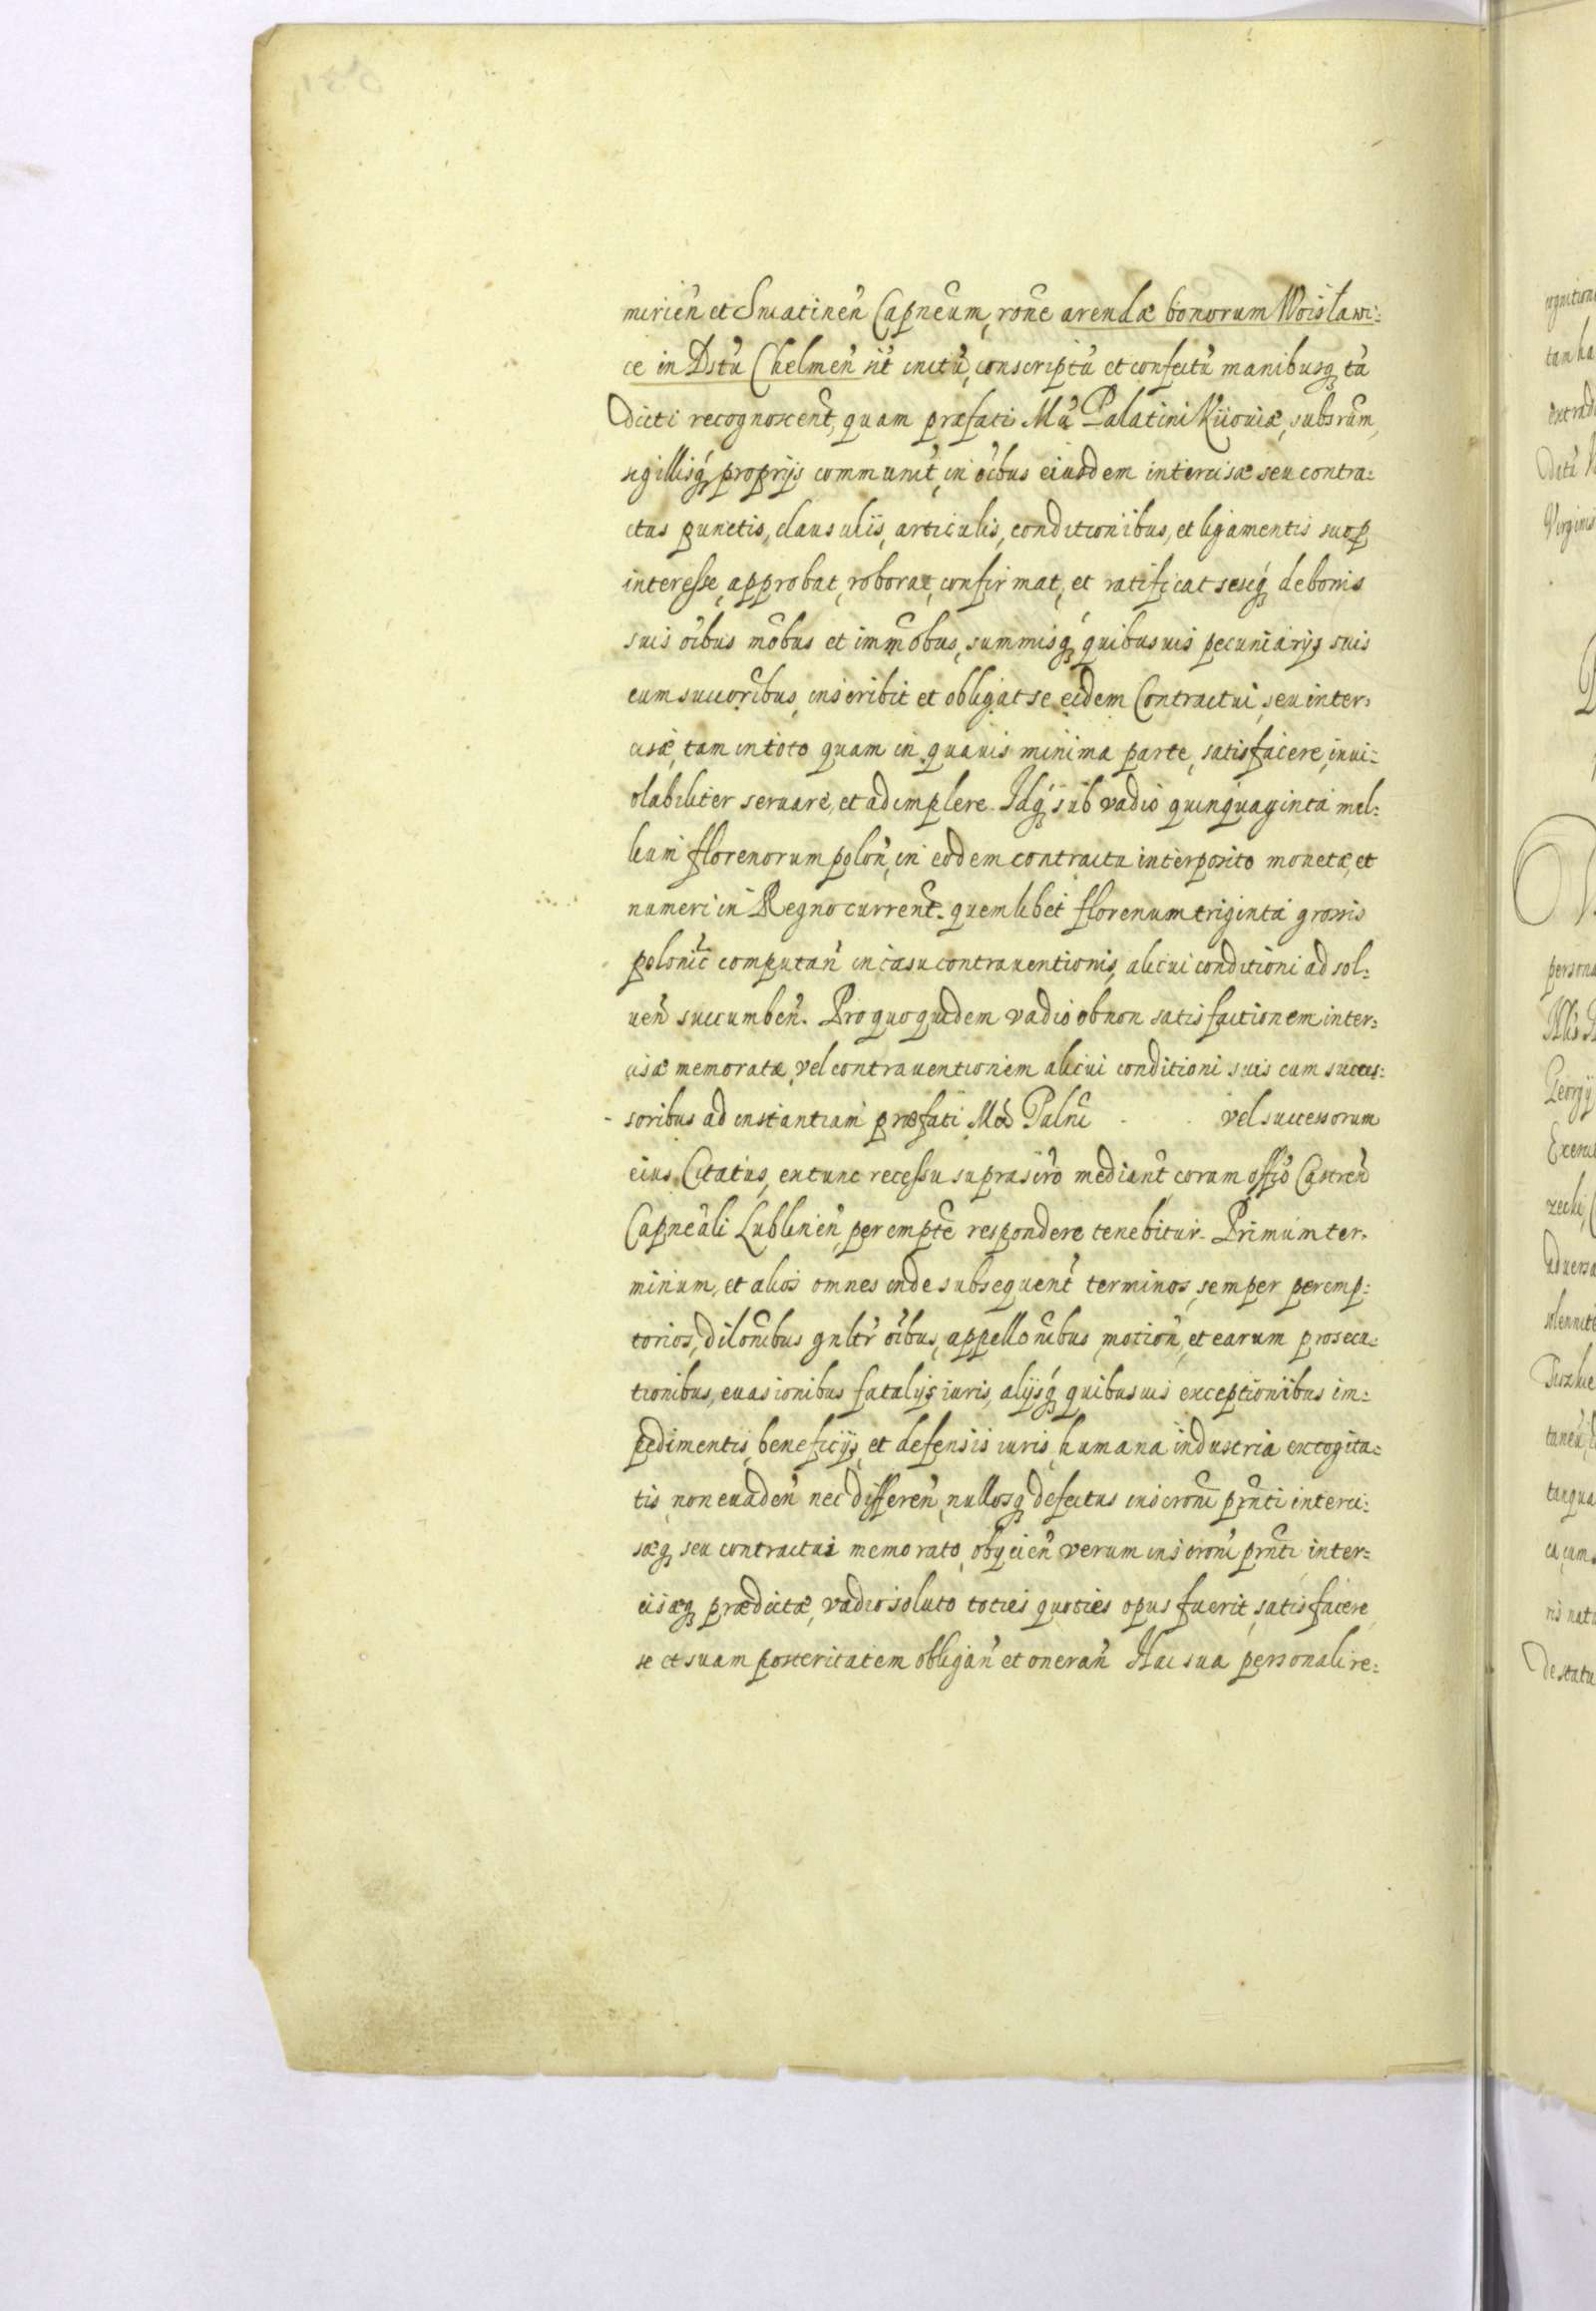 mirien̄ et Sniatinen̄ Capneum, rōne arendæ bonorum Woisławi=
ce in Dstū Chelmen̄ sit initū, conscriptū et confectū manibusq tā
dicti recognoscent̄, quam præfati Mā Palatini Kiiouiæ, subsrum,
sigillisq proprijs communit̄, in oībus eiusdem intercisæ seu contra=
ctus punctis, clausulis, articulis, conditionibus, et ligamentis suop
interesse, approbat, roborat, confirmat, et ratificat seseq de bonis
suis oībus mōbus et immōbus, summisq quibusuis pecuniarijs suis
cum succoribus, inscribit et obligat se eidem Contractui, seu inter=
cisæ, tam in toto quam in quauis minima parte, satisfacere, inui=
olabiliter seruare, et adimplere. Idq sub vadio quinquaginta mil=
lium florenorum polon̄, in eodem contractu interposito monetæ, et
numeri in Regno current̄. quemlibet florenum triginta grossis
polonic̄ computan̄ in casu contrauentionis, alicui conditioni ad sol=
uen̄ succumben̄. Pro quo quidem vadio ob non satisfactionem inter=
cisæ memoratæ, vel contrauentionem alicui conditioni suis cum succes=
soribus ad instantiam præfati Mci Palni vel successorum
eius Citatus, extunc recessu suprascro mediant̄ coram offio Castren̄
Capneali Lublinen̄, perempte respondere tenebitur. Primum ter=
minum, et alios omnes inde subsequent̄ terminos, semper peremp=
torios, dilonibus gnltr oībus, appellonibus motion̄, et earum prosecu=
tionibus, euasionibus fatalijs iuris, alijsq quibusuis exceptionibus im=
pedimentis, beneficijs, et defensis iuris, humana industria excogita=
tis, non euaden̄ nec differen̄, nullosq defectus inscroni prnti interci=
sæq seu contractui memorato, obijcien̄ verum inscroni prnti inter=
cisæq prædictæ, vadio soluto toties quoties opus fuerit, satisfacere
se et suam posteritatem obligan̄ et oneran̄ Hac sua personali re=